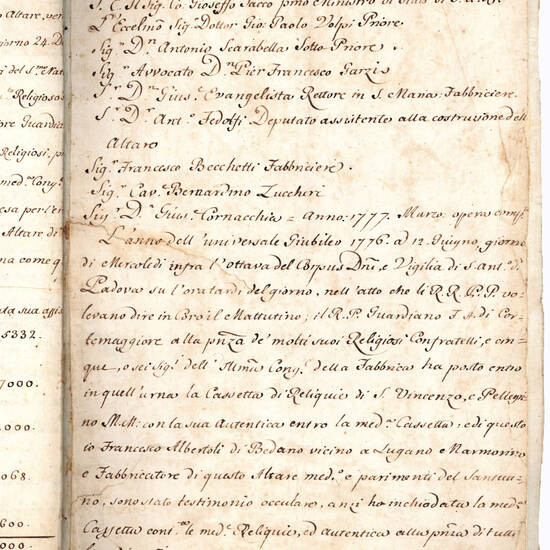 S. E. il Sig. Co. Gioseffo Sacco pmo Ministro di Stato di S. A. R.
L'Eccelmo Sig. Dottor Gio: Paolo Volpi Priore.
Sig.r D.n Antonio Scarabella Sotto Priore.
Sig.r Avvocato D.n Pier Francesco Garzi
S.r D.n Gius.e Evangelista Rettore in S. Maria, Fabbriciere.
S.r D.n Ant.o Fedolfi Deputato assistente alla costruzione dell
Altaro
Sig.r Francesco Becchetti Fabbriciere.
Sig.r Cav.e Bernardino Zuccheri
Sig.r D.n Gius.e Cornacchia = Anno: 1777. Marzo: opera comp.
L'anno dell'universale Giubileo 1776. a 12. Giugno, giorno
di Mercoledì infra l'ottava del Corpus Dñi, e Vigilia di S. Ant.o di
Padova su l'ora tardi del giorno, nell'atto che li R.R. P.P. vo-
levano dire in Coro il Mattutino; il R.P. Guardiano di Cor-
temaggiore alla pñza de' molti suoi Religiosi Confratelli, e cin-
que, o sei Sig.i dell'Illma Cong.e della Fabbrica ha posto entro
in quell'urna la Cassetta di Reliquie di S. Vincenzo, e Pellegri-
no M.M. con la sua Autentica entro la med.a Cassetta; ed io questo
Francesco Albertoli di Bedano vicino a Lugano e Marmorino
e Fabbricatore di questo Altare med.o e parimenti del Santua-
rio, sono stato testimonio occulare, anzi ho inchiodata la med.a
Cassetta cont.e le med.e Reliquie, ed autentica alla pñza di tutti
Altare, ven
giorno 24. D
i del S.mo Nat
Religioso
ore Guardia
Religiosi, p
med.a Cong.
esa per l'er
Altare di
na come q
ta sua assi
5332.
7000.
1.000.
068.
600.
000.